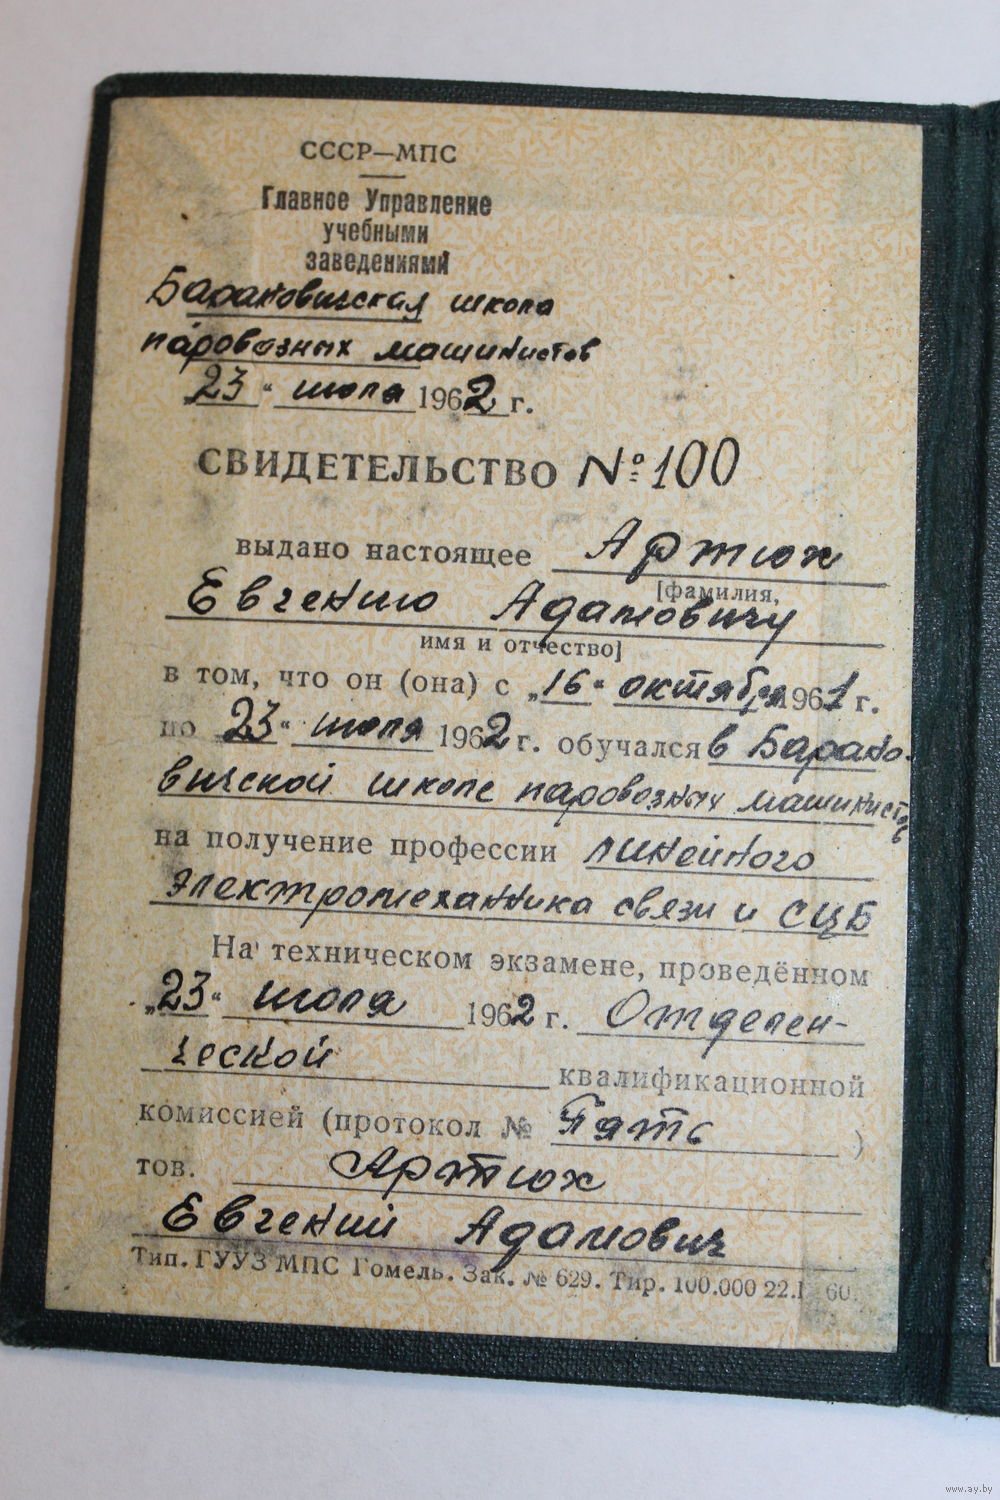 СССР—МПС
Главное Управление
учебными
заведениями
Барановичская школа
паровозных машинистов
„23“ июля 1962 г.
СВИДЕТЕЛЬСТВО № 100
выдано настоящее Артюх
[фамилия,
Евгению Адамовичу
имя и отчество]
в том, что он (она) с „16“ октября 1961 г.
по 23“ июля 1962 г. обучался в Барано-
вичской школе паровозных машинистов
на получение профессии линейного
электромеханника связи и СЦБ
На техническом экзамене, проведённом
„23“ июля 1962 г. Отделен-
ческой
квалификационной
комиссией (протокол № Пять )
тов. Артюх
Евгений Адамович
Тип. ГУУЗ МПС Гомель. Зак. № 629. Тир. 100.000 60.
www.ay.by